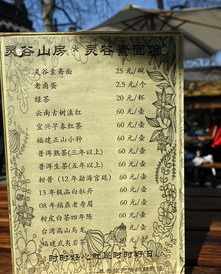 灵谷山房 灵谷素面馆
灵谷素香面 25 元/碗
老卤蛋 2.5 元/个
绿茶 20 元/杯
云南古树滇红 60 元/壶
宜兴早春红茶 60 元/壶
福建正山小种 60 元/壶
普洱熟茶(三年以上) 60 元/壶
普洱生茶(五年以上) 60 元/壶
柑普(12年勐海宫廷) 60 元/壶
13年 白牡丹 60 元/壶
08年福鼎老寿眉 60 元/壶
陈皮白茶四年陈 60 元/壶
台湾高山乌龙 60 元/壶
福建 60 元/壶
时时好心 时时好日